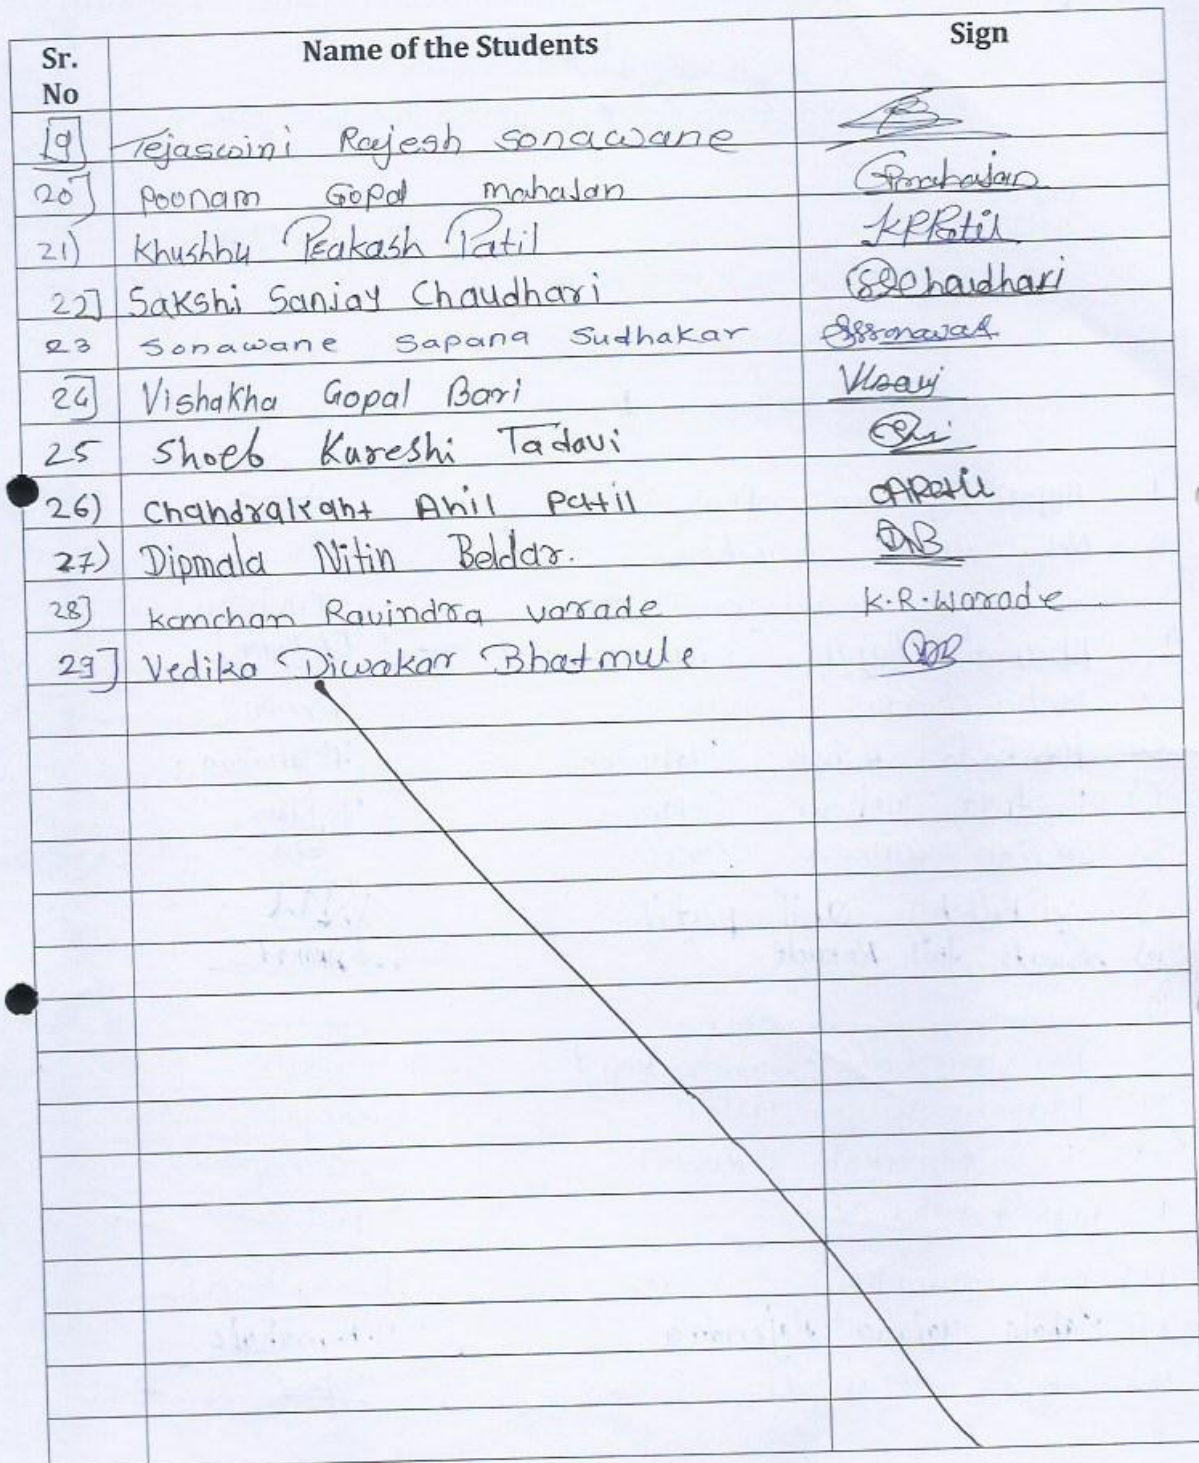 Sr. No Name of the Students Sign
19] Tejaswini Rajesh Sonawane
20] Poonam Gopal mahajan GPmahajan
21) Khushbu Prakash Patil KPPatil
22] Sakshi Sanjay Chaudhari SSChaudhari
23 Sonawane Sapana Sudhakar SSSonawane
24] Vishakha Gopal Bari
25 Shoeb Kureshi Tadavi
26) Chandrakant Anil Patil CAPatil
27) Dipmala Nitin Beldar. DNB
28] kanchan Ravindra varade K.R.Warade
29] Vedika Diwakar Bhatmule